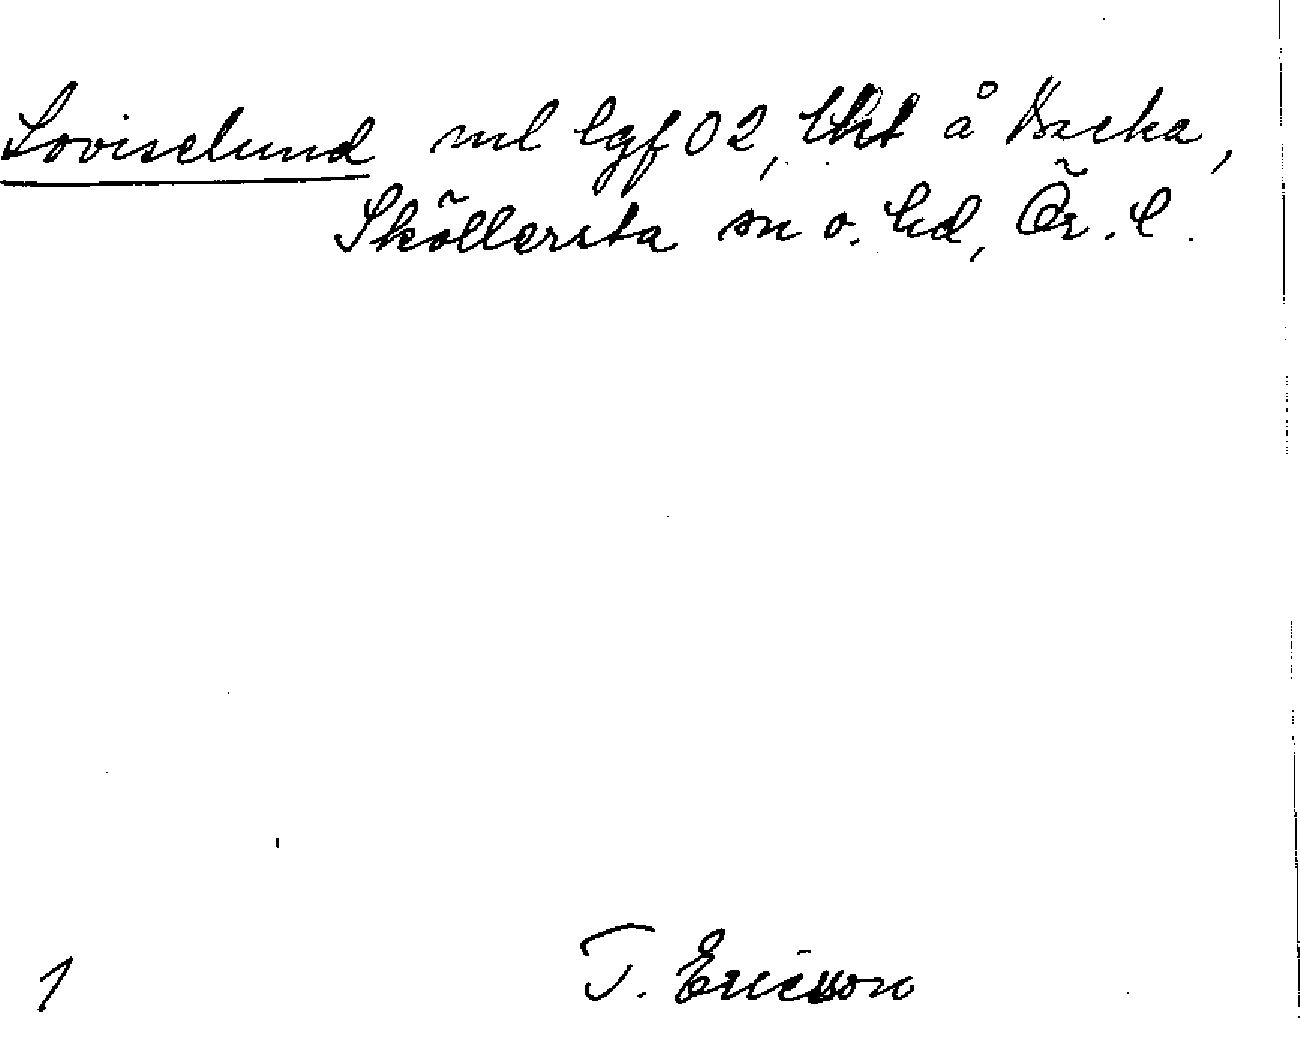 Loviselund ml lgf 02, lht å Backa,
Sköllersta sn o. hd, Ör. l.
1 T. Ericsson